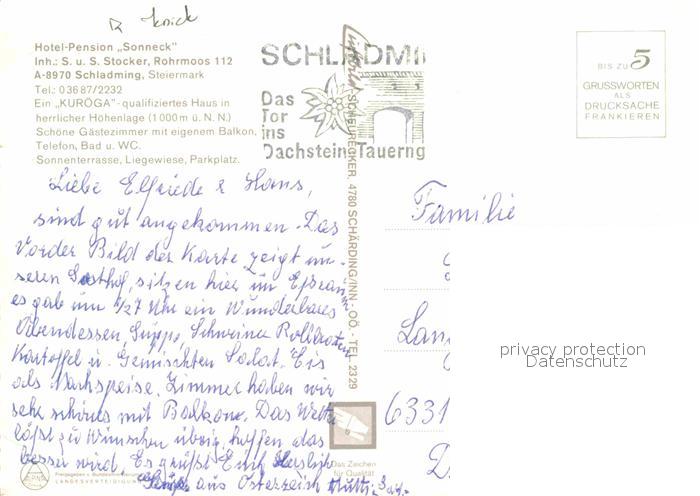 Knick
Hotel-Pension „Sonneck"
Inh.: S. u. S. Stocker, Rohrmoos 112
A-8970 Schladming, Steiermark
Tel.: 036 87/2232
Ein „KURÖGA"-qualifiziertes Haus in
herrlicher Höhenlage (1000 m ü. N.)
Schöne Gästezimmer mit eigenem Balkon,
Telefon, Bad u. WC.
Sonnenterrasse, Liegewiese, Parkplatz.
SCHLADMI
Das
Tor
ins
Dachstein-Tauerng
BIS ZU 5
GRUSSWORTEN
ALS
DRUCKSACHE
FRANKIEREN
Liebe Elfriede & Hans,
sind gut angekommen. Das
Vorder Bild der Karte zeigt un-
seren Gasthof, sitzen hier im
es gab um 1/27 Uhr ein Wunderbares
Abendessen, Suppe, Schweine Rollbraten
Kartoffel u. Gemischten Salat. Eis
als Nachspeise. Zimmer haben wir
sehr schönes mit Balkon. Das Wetter
läßt zu Wünschen übrig, hoffen das
besser wird. Es grüßt Euch Herzlich
aus Österreich Mutti
SCHEURECKER, 4780 SCHÄRDING/INN - OÖ. - TEL. 2329
Familie
Lan
6331
Das Zeichen
für Qualität
privacy protection
Datenschutz